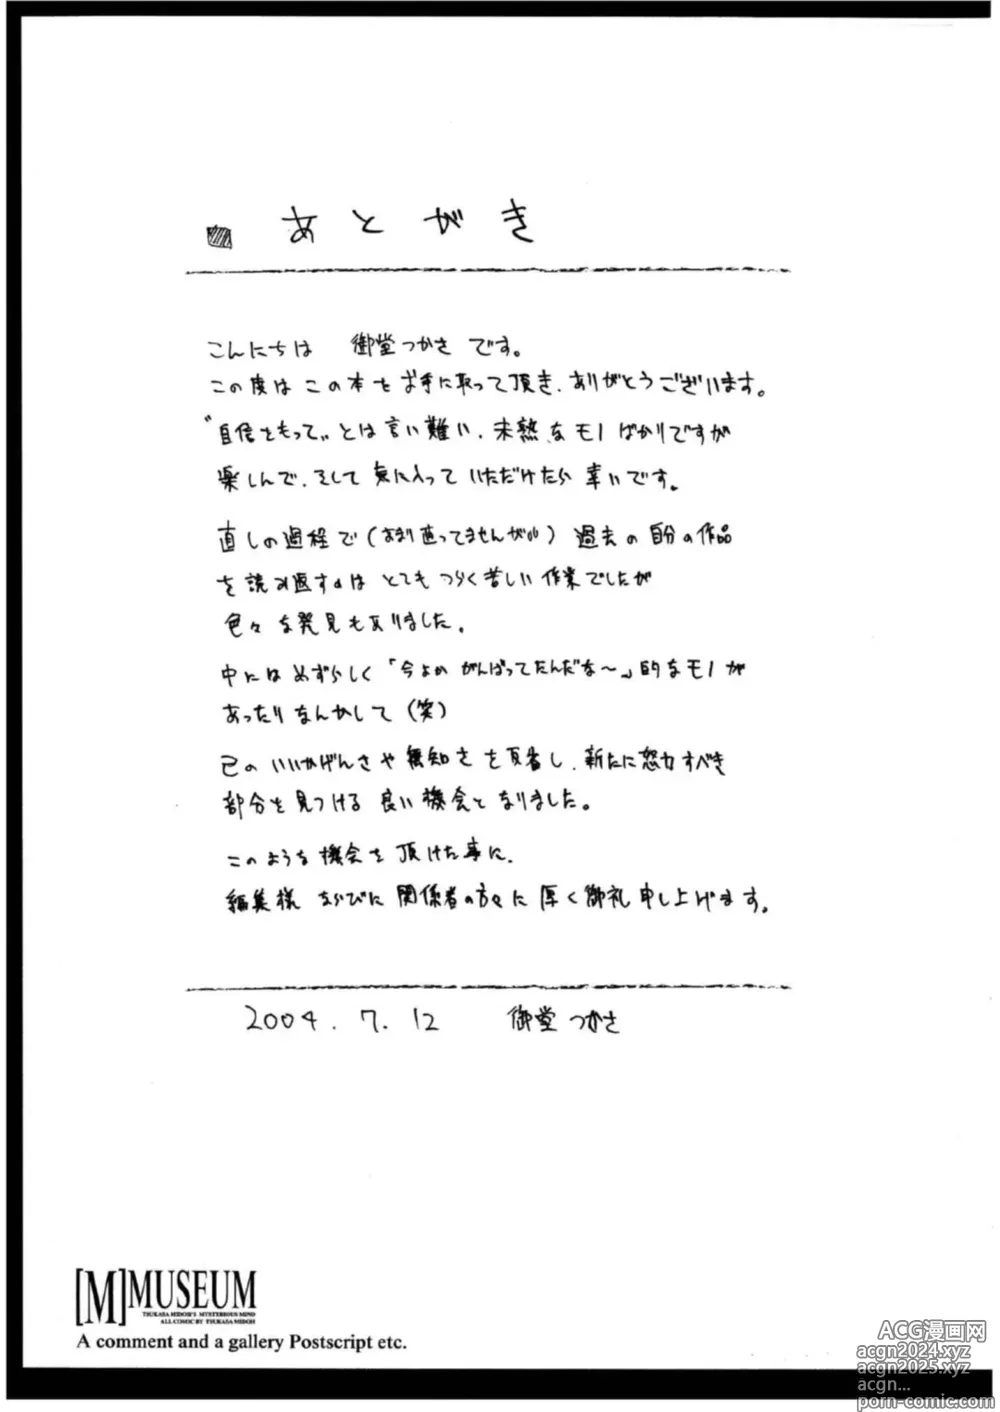 あとがき
こんにちは 御堂つかさ です。
この度は この本を お手に取って頂き、ありがとうございます。
"自信をもって"とは言い難い、未熟なモノばかりですが
楽しんで、そして 気に入って いただけたら 幸いです。
直しの過程で(あまり直ってませんが(汗)) 過去の自分の作品
を読み返すのは とても つらく苦しい 作業でしたが
色々な発見もありました。
中には めずらしく「今よか がんばってたんだな〜」的なモノが
あったり なんかして(笑)
己の いいかげんさや 無知さを反省し、新たに努力すべき
部分を見つける 良い機会と なりました。
このような 機会を 頂けた事に、
編集様 ならびに 関係者の方々に 厚く御礼 申し上げます。
2004.7.12 御堂つかさ
[M]MUSEUM
TSUKASA MIDOH'S MYSTERIOUS MIND
ALL COMIC BY TSUKASA MIDOH
A comment and a gallery Postscript etc.
ACG漫画网
acgn2024.xyz
acgn2025.xyz
acgn...
porn-comic.com